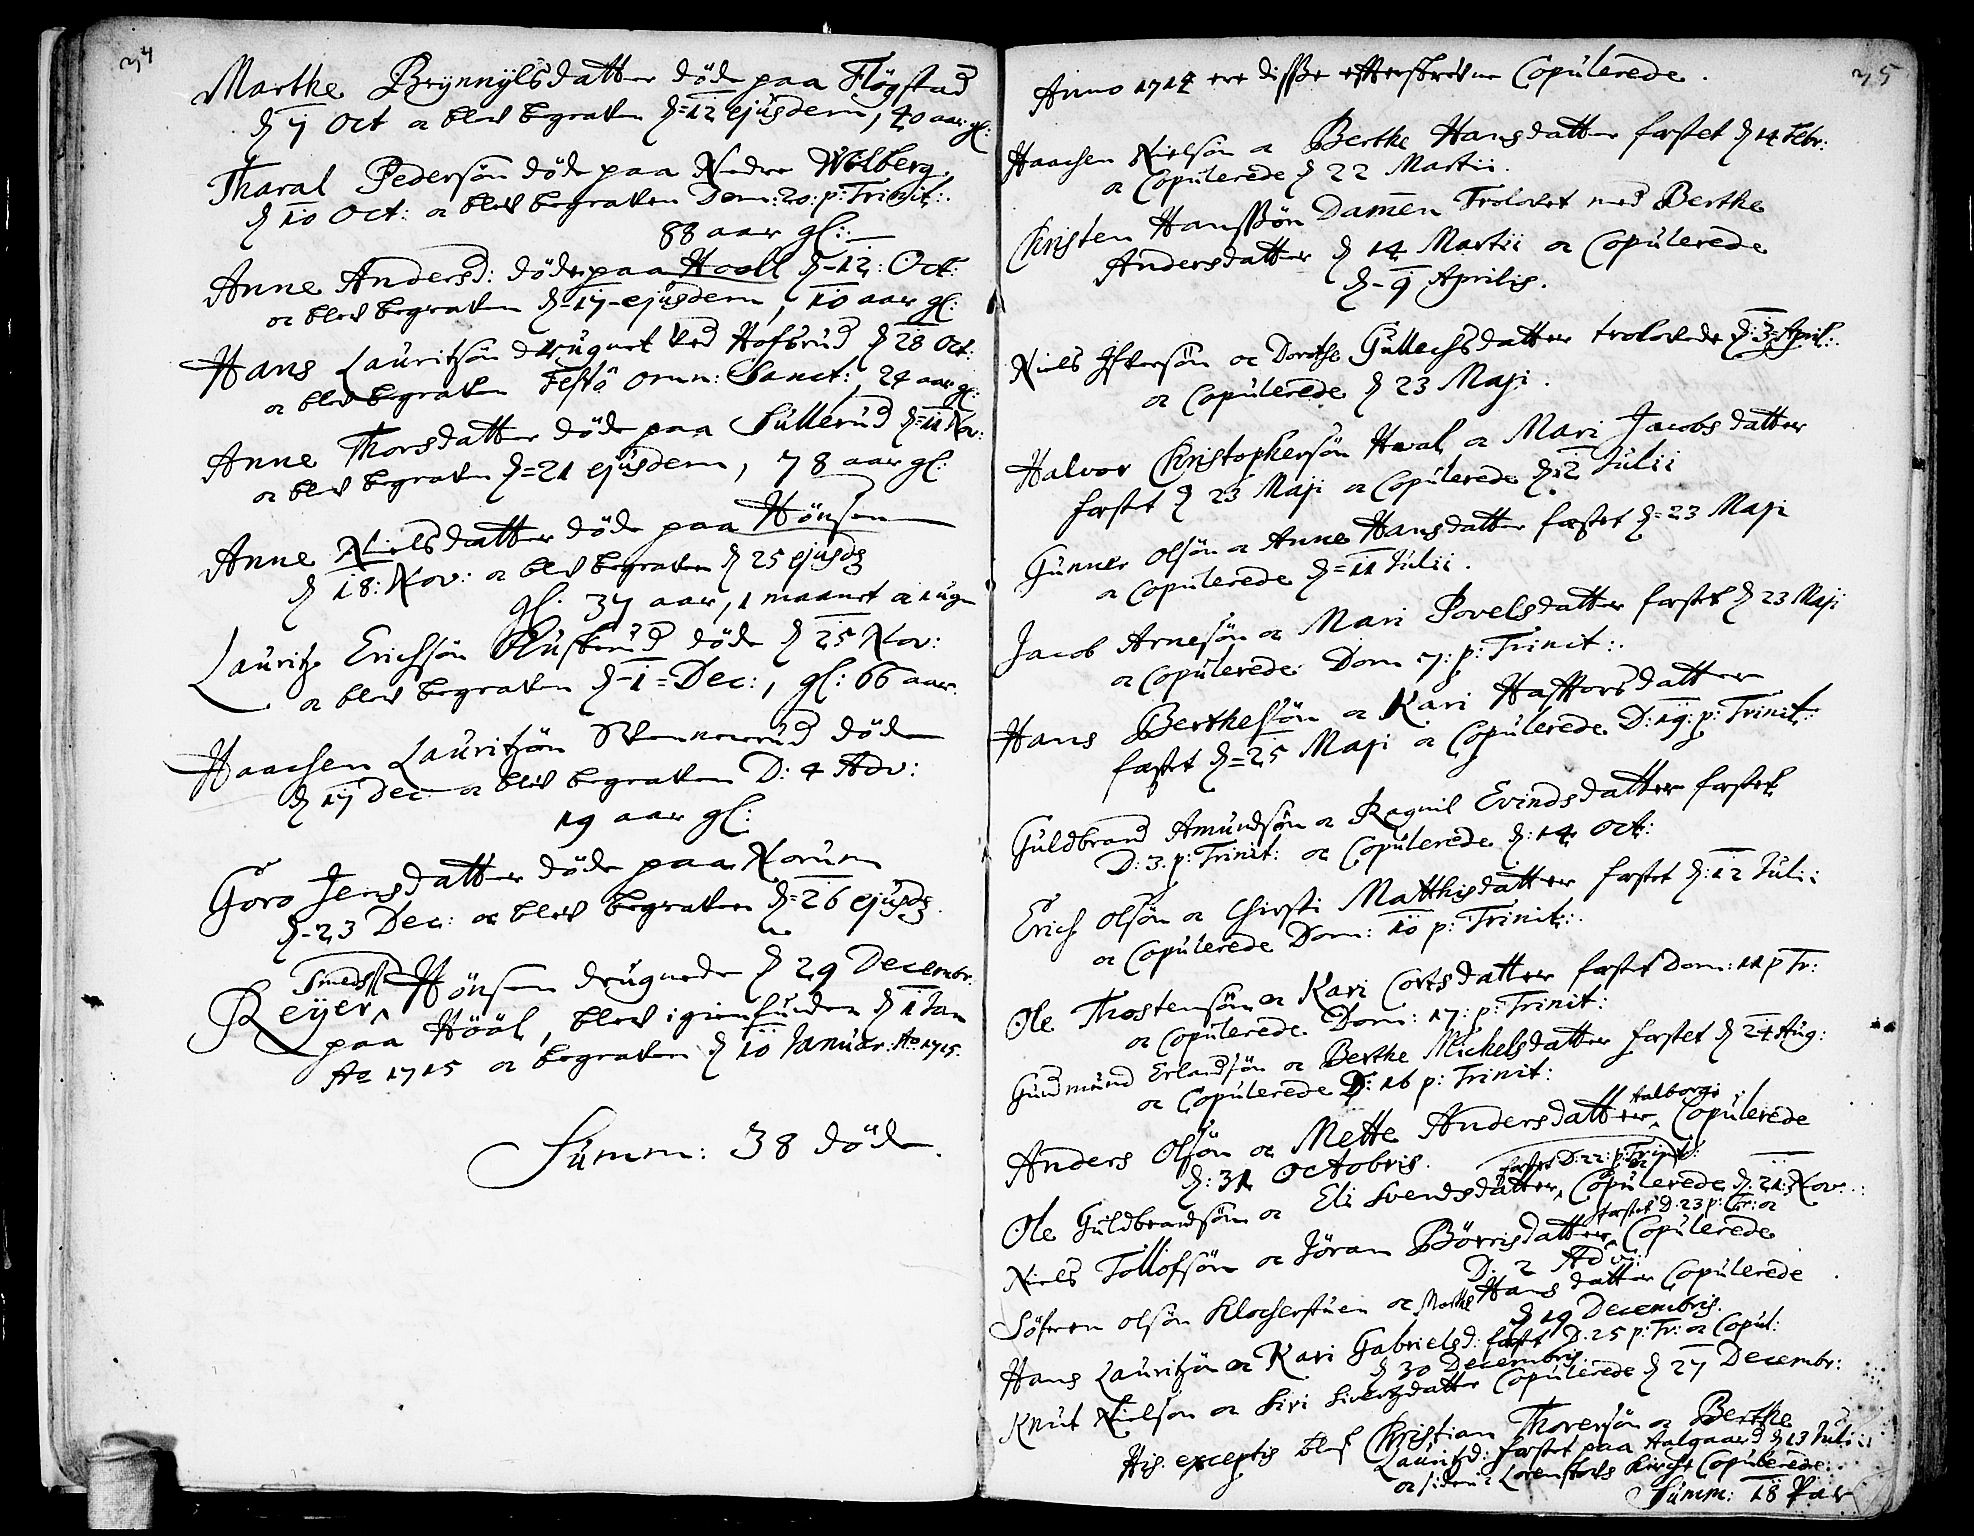 34
Marthe Brynnylsdatter döde paa Flögstad
d 7 Oct oc blef begraven d=12 ejusdem, 40 aar gl:
Tharal Pedersön döde paa Nedre Wolberg
d 10 Oct: oc blef begraven Dom: 20: p: Trinit:
88 aar gl:
Anne Andersd: döde paa Hooll d-12: Oct:
oc blef begraven d-17-ejusdem, 10 aar gl:
Hans Lauritsön druknet ved Hofsrud d 28 Oct:
oc blef begraven Festo Omn: Sanct:, 24 aar gl:
Anne Thorsdatter döde paa Sullerud d=11 Nov:
oc blef begraven d=21 ejusdem, 78 aar gl:
Anne Nielsdatter döde paa Hönsen
d 18: Nov: oc blef begraven d 25 ejusd
gl: 37 aar, 1 maanet oc 1 uge
Lauritz Erichsön døde d 25 Nov:
oc blef begraven d-1=Dec:, gl: 66 aar.
Haachen Lauritzön döde
d 17 Dec: oc blef begraven D: 4 Adv:
19 aar gl:
Goro Jensdatter döde paa Norum
d-23 Dec: oc blef begraven d=26 ejusd
Smed
Reyer Hönsen druknede d 29 Decembr:
paa Hööl, blef igienfunden d 1 Jan
Ao 1715 oc begraven d 10 Januar: Ao 1715.
Summ: 38 döde.
35
Anno 1714 ere disse efterskrevne Copulerede.
Haachen Nielsön oc Berthe Hansdatter festet d 14 Febr:
oc Copulerede d 22 Martii.
Christen Hanssön Damen Trolovet med Berthe
Andersdatter d 14 Martii oc Copulerede
d-9 Aprilis.
Niels Ifversön oc Dorothe Gullechsdatter trolovede d: 3=April:
oc Copulerede d 23 Maji.
Halvor Christophersön Hval oc Mari Jacobsdatter
festet d 23 Maji oc Copulerede d: 2 Julii
Gunner Olsön oc Anne Hansdatter festet d=23 Maji
oc Copulerede d=11 Julii.
Jacob Arnesön oc Mari Povelsdatter festet d 23 Maji
oc Copulerede Dom 7: p: Trinit:.
Hans Berthelsön oc Kari Haffvorsdatter
festet d=25 Maji oc Copulerede D: 19: p: Trinit:
Guldbrand Amundsön oc Ragnil Evindsdatter festet
D: 3. p: Trinit: oc Copulerede d: 14 Oct:
Erich Olsön oc Chirsti Matthisdatter festet d: 12 Julii
oc Copulerede Dom: 10 p: Trinit:.
Ole Thostensön oc Kari Cortsdatter festet Dom: 11 p Tr:
oc Copulerede Dom: 17: p: Trinit:
Gudmund Erlandsön oc Berthe Michelsdatter festet d 24 Aug:
oc Copulerede D: 16 p: Trinit:
Aalborg
Anders Olsön oc Mette Andersdatter Copulerede
d: 31 Octobris.
festet D: 22: p: Trinit: oc
Ole Guldbrandsön oc Eli Svendsdatter Copulerede d. 21: Nov:
festet D. 23 p: Tr: oc
Niels Tollofsön oc Jöran Börrisdatter Copulerede
D: 2 Adv:
Söfren Olsön Klocherstuen oc Marthe Hansdatter Copulerede
d 19 Decembris.
Hans Lauritzön oc Kari Gabrielsd: festet D. 25 p: Tr: oc Copul:
d 30 Decembris.
Knut Nielson oc Siri Sivertzdatter Copulerede d 27 Decembr:
His exceptis blef Christian Thorersön oc Berthe
Lauritzd: festet paa Aalgaard d 13 Julii
oc siden i Lorenskovs Kirche Copulerede.
Summ: 18 Par